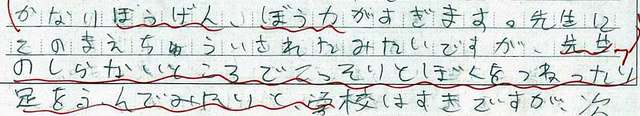 かなりぼうげん、ぼう力がすぎます。先生に
そのまえちゅういされたみたいですが、先生
のしらないところでこっそりとぼくをつねったり
足をふんでみたりと、学校はすきですが、次